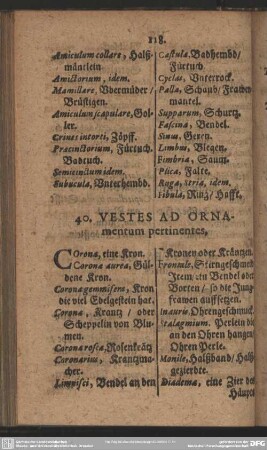 118.
Amiculum collare, Halß-
mäntlein
Amictorium, idem.
Mamillare, Vbermüder/
Brüstigen.
Amiculum scapulare, Gol-
ler.
Crines intorti, Zöpff.
Præcinctorium, Fürtuch.
Badtuch.
Semicinctum idem.
Subucula, Vnterhembd.
Castula, Badhembd/
Fürtuch.
Cyclas, Vnterrock.
Palla, Schaub/ Frawen-
mantel.
Supparum, Schurtz.
Fascina, Bendel.
Sinus, Geren.
Limbus, Blegen.
Fimbria, Saum.
Plica, Falte.
Ruga, stria, idem.
Fibula, Ring/ Hafft.
40. VESTES AD ORNA-
mentum pertinentes,
Corona, eine Kron.
Corona aurea, Gül-
dene Kron.
Corona gemmifera, Kron
die viel Edelgestein hat.
Corona, Krantz / oder
Scheppelin von Blu-
men.
Corona rosea, Rosenkräntz
Coronarius, Krantzma-
cher.
Limpisci, Bendel an den
Kronen oder Kräntzen.
Fronnale, Stirngeschmeid
Item ein Bendel oder
Borten / so die Jung-
frawen auffsetzen.
Inauris, Ohrengeschmuck
Stalagmium. Perlein die
an den Ohren hangen,
Ohren Perle.
Monile, Halßband/ Halß-
gezierdte.
Diadema, eine Zier des
Häupts